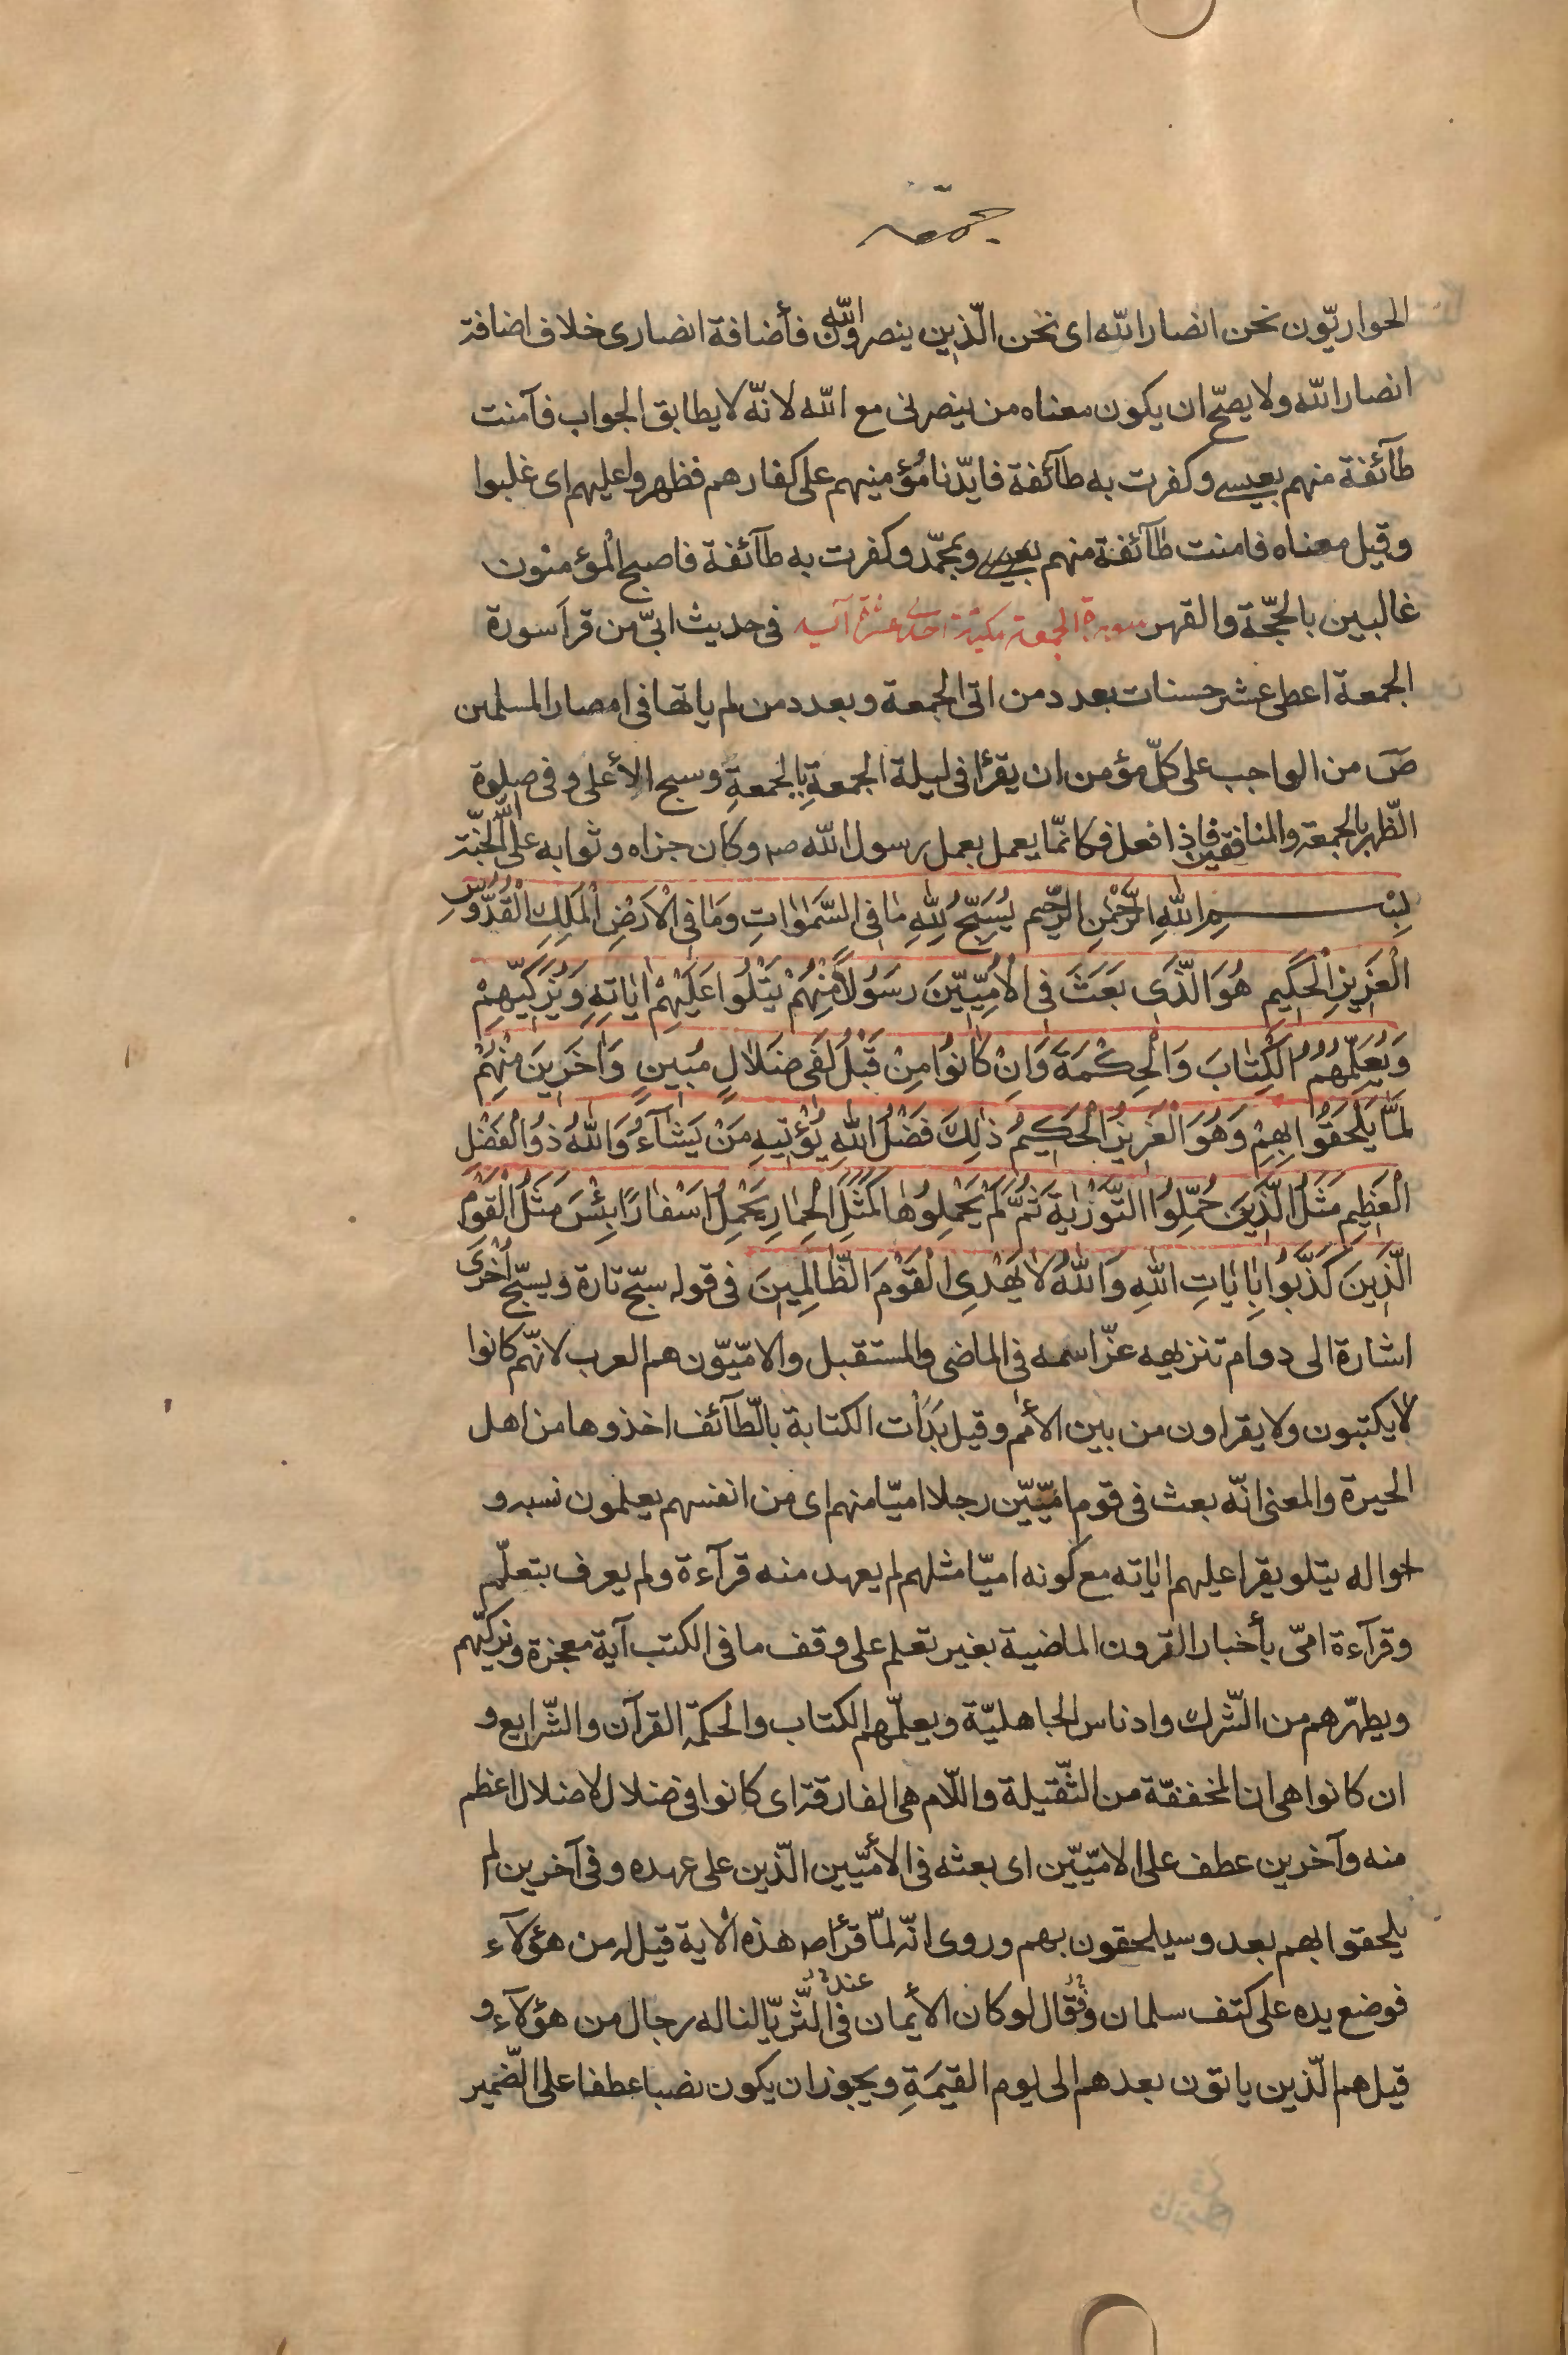 جمعه
الحواريّون نحن انصار الله اى نحن الّذين ينصرون الله فأضافة انصارى خلاف اضافة
انصار الله ولا يصحّ ان يكون معناه من ينصرنى مع الله لانّه لا يطابق الجواب فآمنت
طآئفة منهم بعيسى وكفرت به طآئفة فايّدنا مؤمنيهم على كفارهم فظهروا عليهم اى غلبوا
وقيل معناه فامنت طآئفة منهم بعيسى وبمحمّد وكفرت به طآئفة فاصبح المؤمنون
غالبين بالحجّة والقهر سورة الجمعة مكيّة احدى عشرة آية فى حديث ابىّ من قرأ سورة
الجمعة اعطى عشر حسنات بعدد من اتى الجمعة وبعدد من لم ياتها فى امصار المسلمين
صَ من الواجب على كلّ مؤمن ان يقرٔا فى ليلة الجمعةِ بالجمعةِ وسبح الأعلى وفى صلوة
الظّهر بالجمعة والمنافقين فاذا فعل فكانّما يعمل بعمل رسول الله صه وكان جزاه وثوابه على الله الجنّة
بِسْمِ اللهِ الرَّحْمٰنِ الرَّحِيم يُسَبِّحُ لِلّٰهِ مٰا فِى السَّمٰوٰاتِ وَمٰا فِى الْاَرْضِ الْمَلِكِ الْقُدُّوسِ
الْعَزِيزِ الْحَكِيمِ هُوَ الَّذِى بَعَثَ فِى الْاُمِّيِّينَ رَسُولاً مِنْهُمْ يَتْلُوا عَلَيْهِمْ اٰيٰاتِهِ وَيُزَكِّيهِمْ
وَيُعَلِّمُهُمُ الْكِتٰابَ وَالْحِكْمَةَ وَاِنْ كٰانُوا مِنْ قَبْلُ لَفِى ضَلاٰلٍ مُبِينٍ وَاٰخَرِينَ مِنْهُمْ
لَمّٰا يَلْحَقُوا بِهِمْ وَهُوَ الْعَزِيزُ الْحَكِيمُ ذٰلِكَ فَضْلُ اللهِ يُؤْتِيهِ مَنْ يَشٰآءُ وَاللهُ ذُو الْفَضْلِ
الْعَظِيمِ مَثَلُ الَّذِينَ حُمِّلُوا التَّوْرٰيةَ ثُمَّ لَمْ يَحْمِلُوهٰا كَمَثَلِ الْحِمٰارِ يَحْمِلُ اَسْفٰارًا بِئْسَ مَثَلُ الْقَوْمِ
الَّذِينَ كَذَّبُوا بِاٰيٰاتِ اللهِ وَاللهُ لاٰ يَهْدِى الْقَوْمَ الظّٰالِمِينَ فى قوله سبّح تارة ويسبّح اُخْرى
اشارة الى دوام تنزيهه عزّ اسمه فى الماضى والمستقبل والامّيّون هم العرب لانّهم كانوا
لا يكتبون ولا يقراون من بين الأمم وقيل بَدَأت الكتابة بالطّآئف اخذوها من اهل
الحيرة والمعنى انّه بعث فى قوم امّيّين رجلا اميّا منهم اى من انفسهم يعلمون نسبه و
احواله يتلو يقرا عليهم اٰياته مع كونه اميّا مثلهم لم يعهد منه قرآءة ولم يعرف بتعلّم
وقرآءة امّى بأخبار القرون الماضية بغير تعلم على وقف ما فى الكتب آية معجزة ويزكّيهم
ويطهّرهم من الشّرك وادناس الجاهليّة ويعلّمهم الكتاب والحكمة القرآن والشّرايع و
ان كانوا هى ان المخففّة من الثّقيلة واللّام هى الفارقة اى كانوا فى ضلال لا ضلال اعظم
منه وآخرين عطف على الامّيّين اى بعثه فى الأمّيّين الّذين على عهده وفى آخرين لم
يلحقوا بهم بعد وسيلحقون بهم وروى انّه لمّا قرأ صه هذه الاية قيل له من هؤلآء
فوضع يده على كتف سلمان وقال لو كان الأيمان عند فى الثّريّا لناله رجال من هؤلآء و
قيل هم الّذين ياتون بعدهم الى يوم القيمَةِ ويجوز ان يكون نصبا عطفا على الضّمير